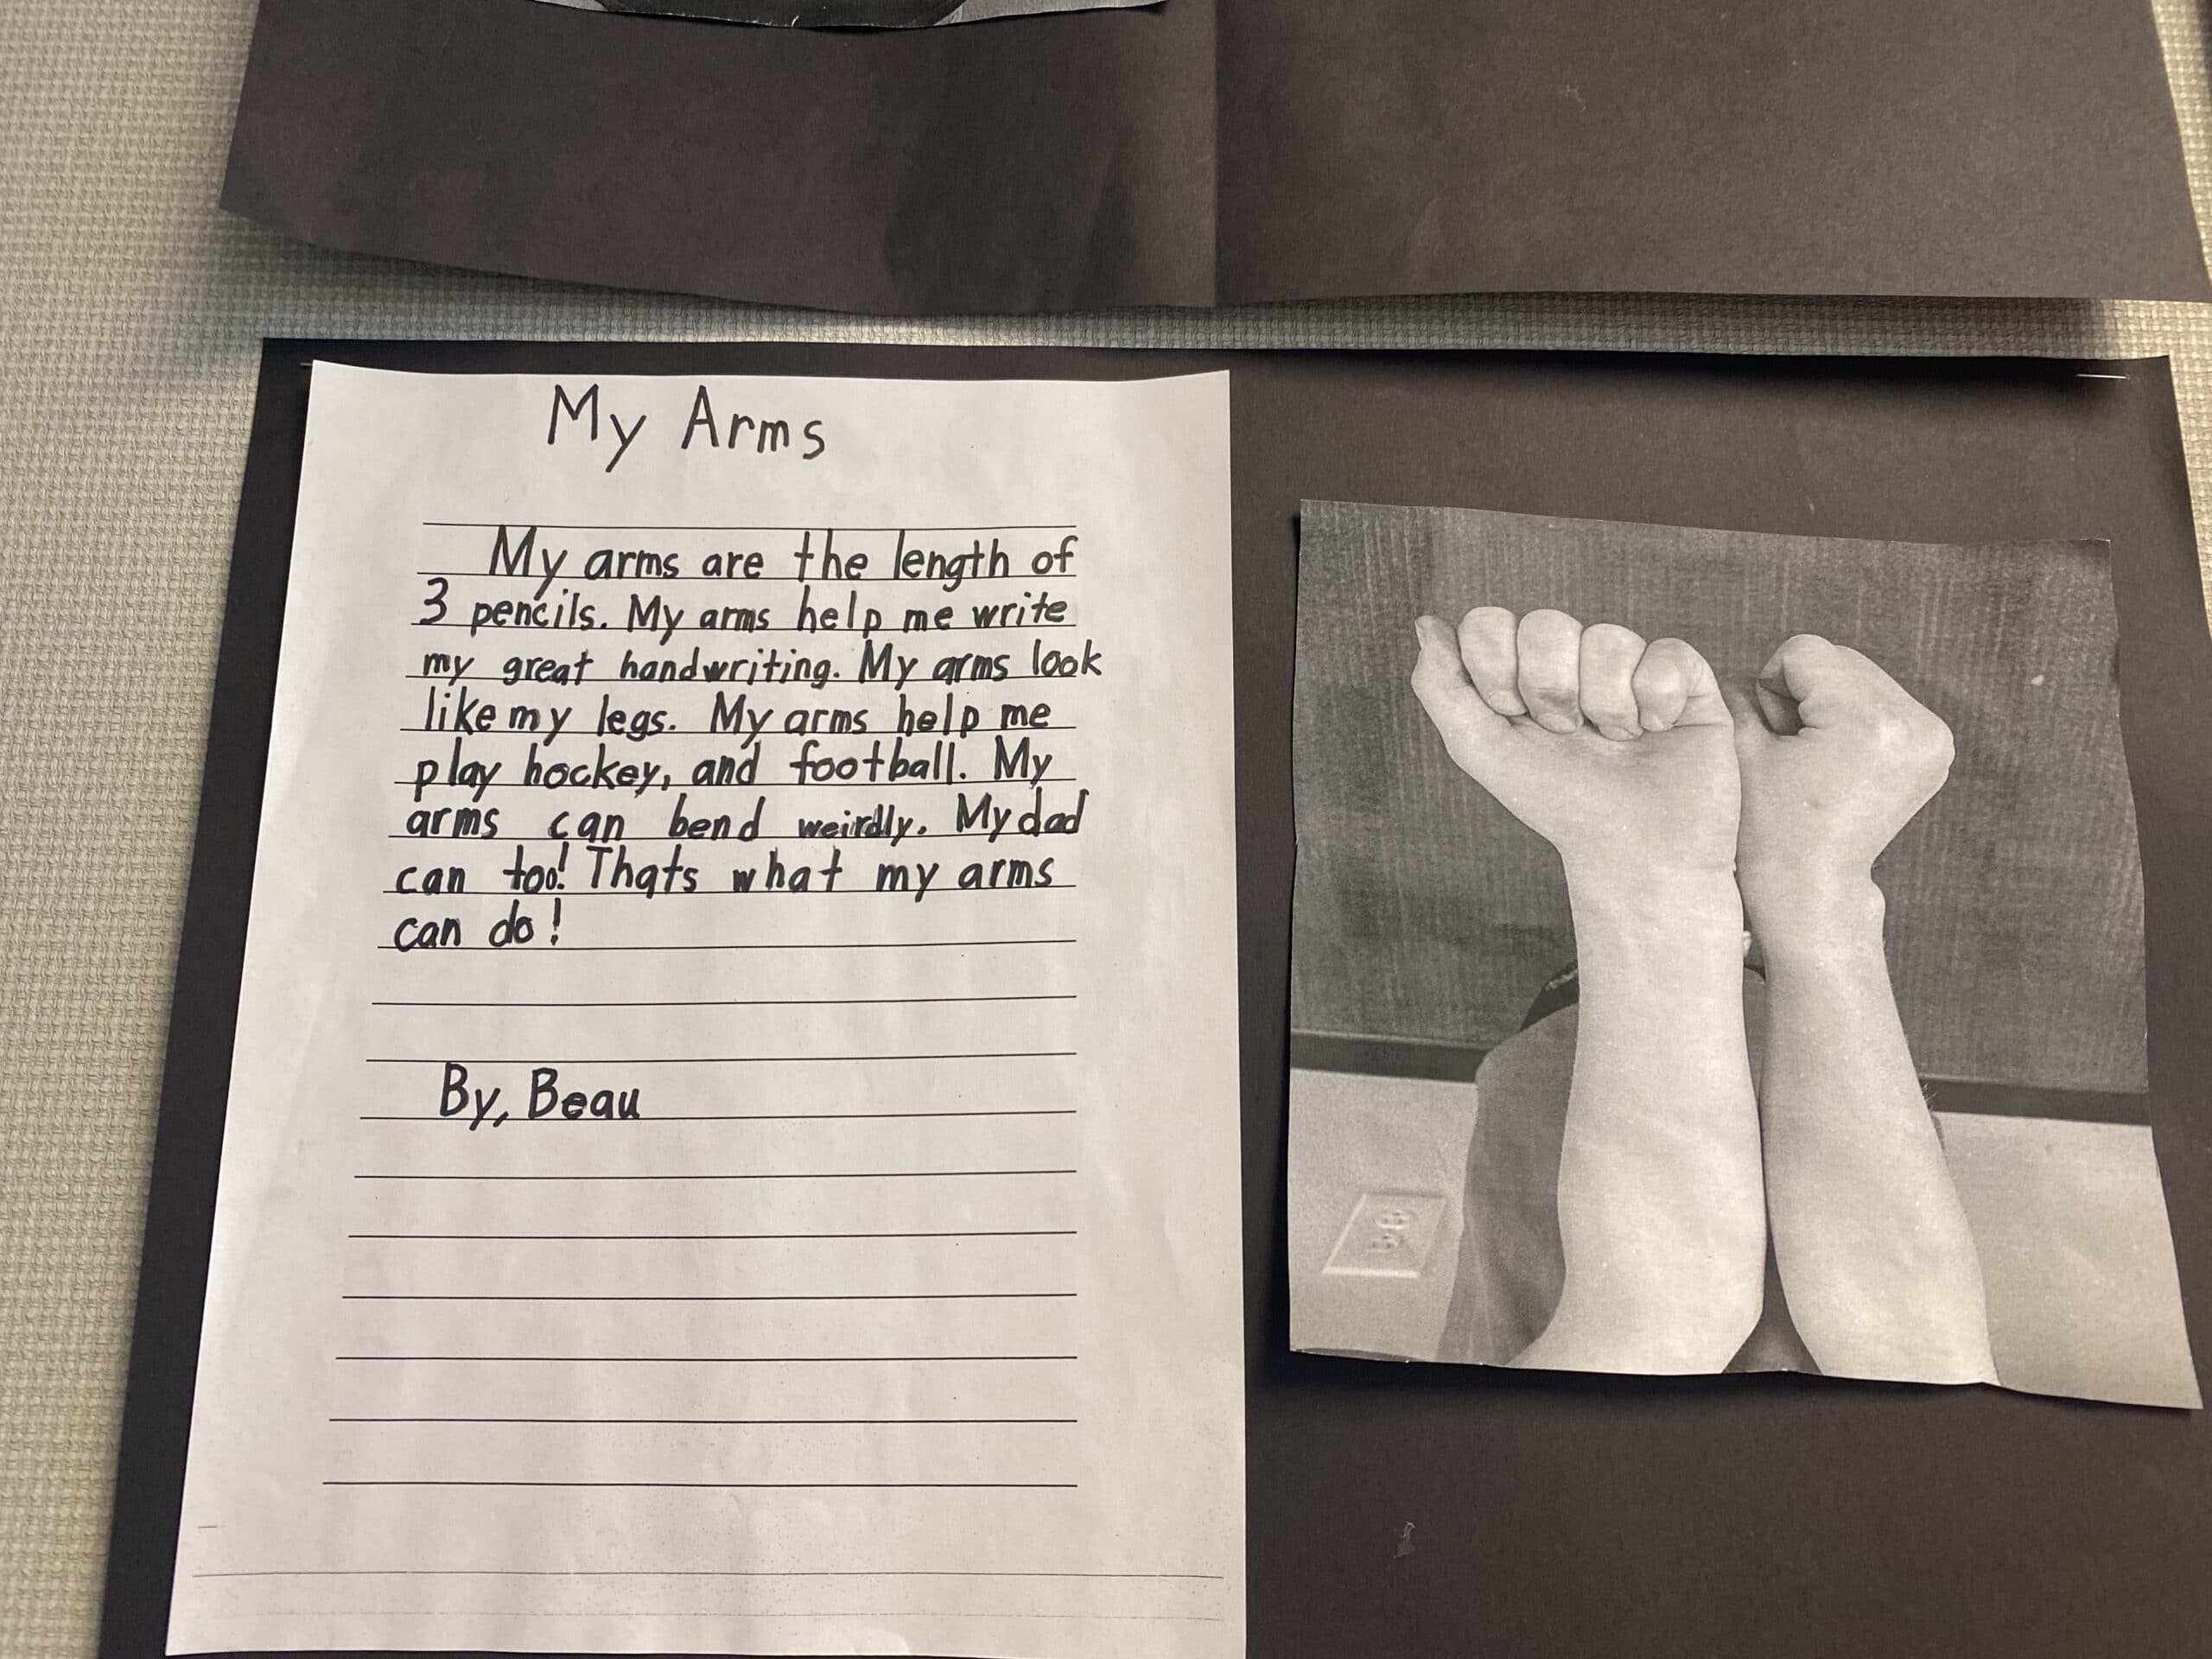 My Arms
My arms are the length of
3 pencils. My arms help me write
my great handwriting. My arms look
like my legs. My arms help me
play hockey, and football. My
arms can bend weirdly. My dad
can too! Thats what my arms
can do!
By, Beau